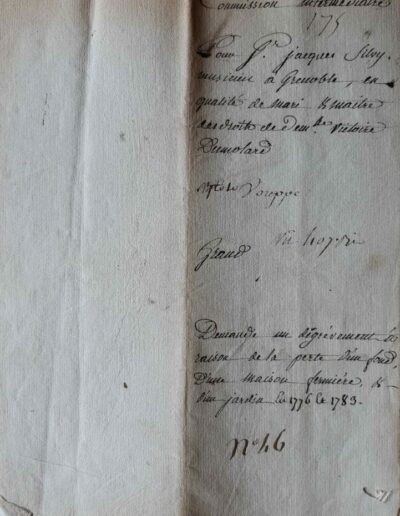 Commission intermédiaire
175
Pour Sr. jacques Silvy,
musicien à Grenoble, en
qualité de mari & maitre
des droits de Dem.lle Victoire
Dumolard
Voreppe
Grand
Demande un dégrèvement en
raison de la perte d'un fond,
D'une maison fermière, &
d'un jardin en 1776 & 1783.
N° 46